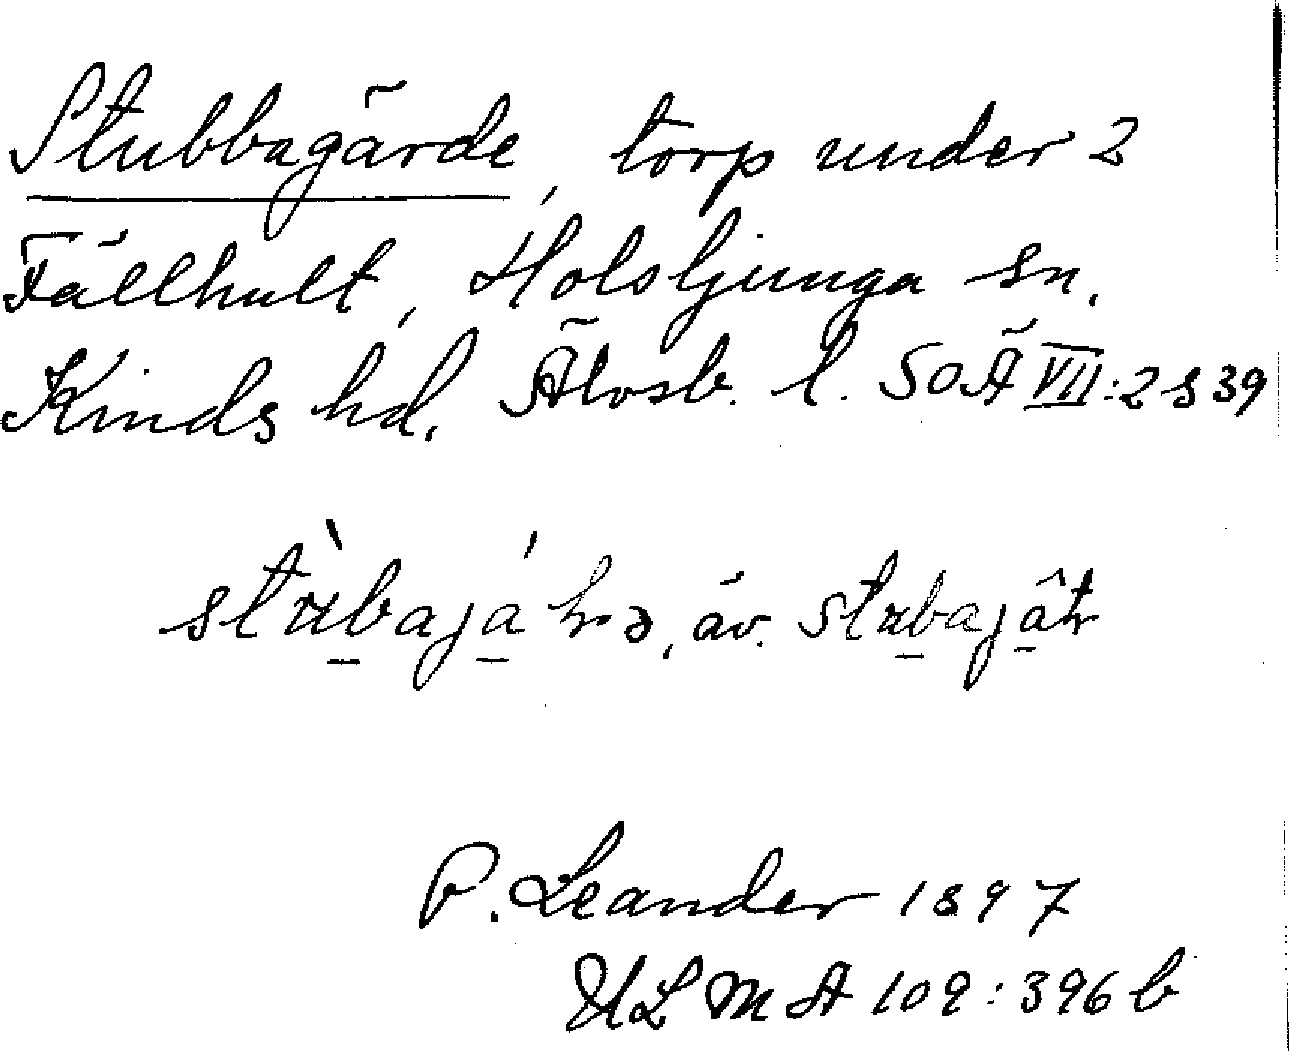 Stubbagärde, torp under 2
Fällhult, Holsljunga sn.
Kinds hd. Älvsb. l. SOÄ VII:2 s 39
stùbajá hə, äv. stubajât
P. Leander 1897
ULMA 109:396 b